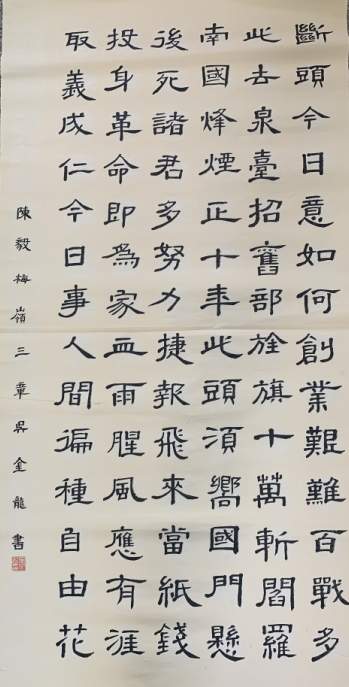 斷頭今日意如何創業艱難百戰多
此去泉臺招舊部旌旗十萬斬閻羅
南國烽煙正十年此頭須嚮國門懸
後死諸君多努力捷報飛來當紙錢
投身革命即為家血雨腥風應有涯
取義成仁今日事人間徧種自由花
陳毅梅嶺三章吳金龍書